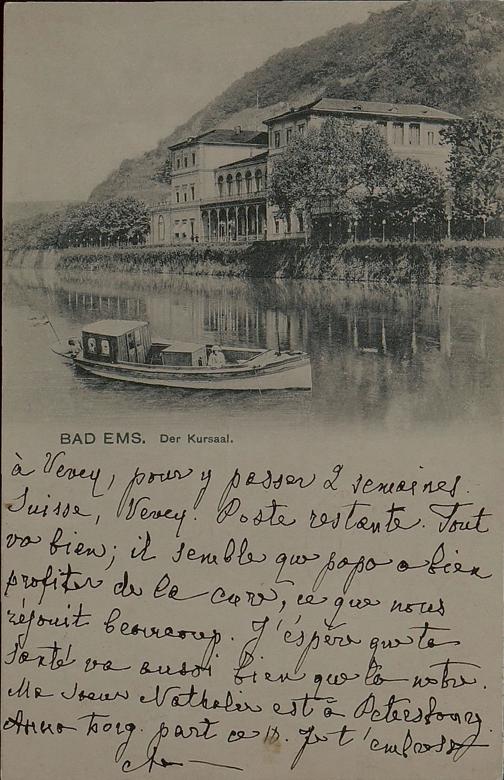 BAD EMS. Der Kursaal.
à Vevey, pour y passer 2 semaines.
Suisse, Vevey. Poste restante. Tout
va bien; il semble que papa a bien
profiter de la cure, ce que nous
réjouit beaucoup. J'éspère que ta
santé va aussi bien que la notre.
Ma soeur Nathalie est à Petersbourg.
Anna part ce Je t'embrasse